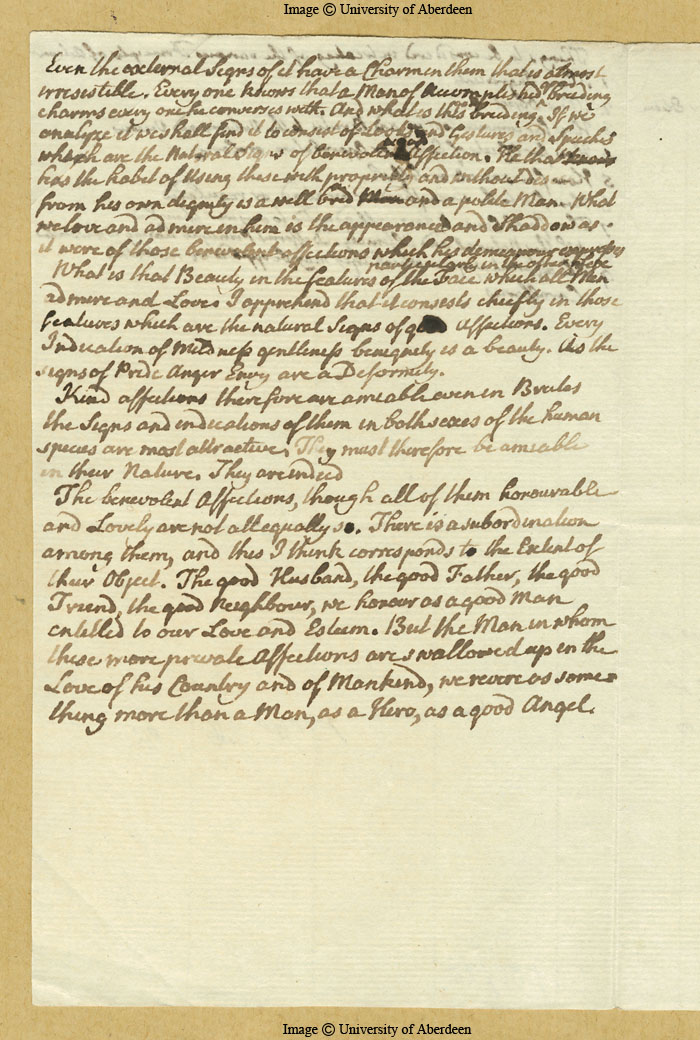 Image © University of Aberdeen
Even the external Signs of it have a Charm in them that is almost
irresistible. Every one knows that a Man of Accomplished breeding
charms every one he converses with. And what is this breeding. If we
analyze it we shall find it to consist of Looks and Gestures and Speeches
which are the Natural Signs of benevolent Affection. He that
has the habit of Using these with propriety and without
from his own dignity is a well bred Man and a polite Man. What
we love and admire in him is the appearance and Shaddow as
it were of those benevolent affections which his demeanour expresses
particularly in the
What is that Beauty in the features of the Face which all Men
admire and Love? I apprehend that it consists chiefly in those
features which are the natural Signs of good Affections. Every
Indication of Mildness gentleness benignity is a beauty. As the
signs of Pride Anger Envy are a Deformity.
Kind affections therefore are amiable even in Brutes
the Signs and indications of them in both sexes of the human
species are most attractive. They must therefore be amiable
in their Nature. They are indeed
The benevolent Affections, though all of them honourable
and Lovely are not all equally so. There is a subordination
among them, and this I think corresponds to the Extent of
their Object. The good Husband, the good Father, the good
Friend, the good Neighbour, we honour as a good Man
entitled to our Love and Esteem. But the Man in whom
these more private Affections are swallowed up in the
Love of his Country and of Mankind, we revere as some=
thing more than a Man, as a Hero, as a good Angel.
Image © University of Aberdeen